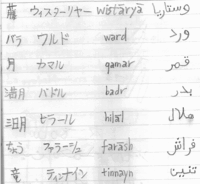 藤 ウィスターリヤー wistāryā وستاريا
バラ ワルド ward ورد
月 カマル qamar قمر
満月 バドル badr بدر
三日月 ヒラール hilāl هلال
ちょう ファラーシュ farāsh فراش
竜 ティンナイン tinnayn تنين